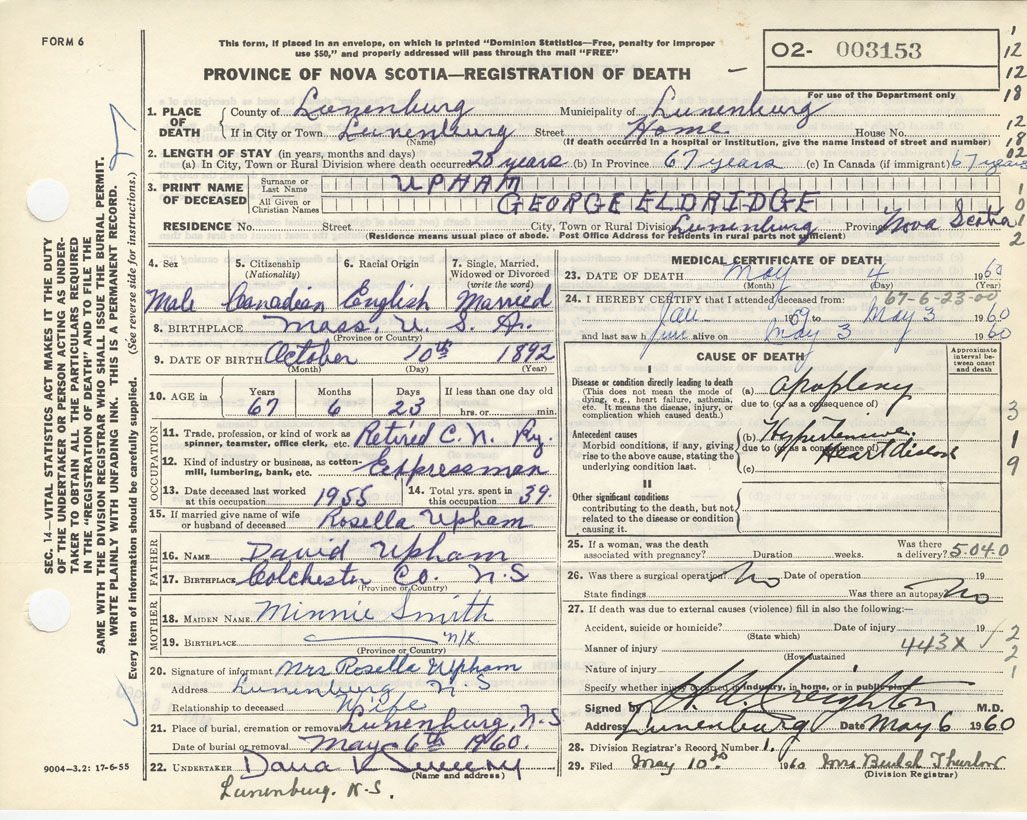 FORM 6
This form, if placed in an envelope, on which is printed "Dominion Statistics—Free, penalty for improper
use $50," and properly addressed will pass through the mail "FREE"
PROVINCE OF NOVA SCOTIA—REGISTRATION OF DEATH
02- 003153
For use of the Department only
1. PLACE OF DEATH { County of Lunenburg Municipality of Lunenburg
If in City or Town Lunenburg Street Home House No.
(Name) (If death occurred in a hospital or institution, give the name instead of street and number)
2. LENGTH OF STAY (in years, months and days)
(a) In City, Town or Rural Division where death occurred 28 years (b) In Province 67 years (c) In Canada (if immigrant) 67 years
3. PRINT NAME OF DECEASED
Surname or Last Name UPHAM
All Given or Christian Names GEORGE ELDRIDGE
RESIDENCE No. Street City, Town or Rural Division Lunenburg Province Nova Scotia
(Residence means usual place of abode. Post Office Address for residents in rural parts not sufficient)
4. Sex Male
5. Citizenship (Nationality) Canadian
6. Racial Origin English
7. Single, Married, Widowed or Divorced (write the word) Married
8. BIRTHPLACE Mass. U. S. A.
(Province or Country)
9. DATE OF BIRTH October 10th 1892
(Month) (Day) (Year)
10. AGE in { Years 67 Months 6 Days 23 If less than one day old hrs. or min.
OCCUPATION
11. Trade, profession, or kind of work as spinner, teamster, office clerk, etc. Retired C. N. Ry.
12. Kind of industry or business, as cotton-mill, lumbering, bank, etc. Expressman
13. Date deceased last worked at this occupation 1955
14. Total yrs. spent in this occupation 39.
15. If married give name of wife or husband of deceased Rosella Upham
FATHER
16. NAME David Upham
17. BIRTHPLACE Colchester Co. N.S
(Province or Country)
MOTHER
18. MAIDEN NAME Minnie Smith
19. BIRTHPLACE n/k
(Province or Country)
20. Signature of informant Mrs Rosella Upham
Address Lunenburg N.S
Relationship to deceased Wife
21. Place of burial, cremation or removal Lunenburg, N.S
Date of burial or removal May 6th 1960.
22. UNDERTAKER
(Name and address)
Lunenburg. N.S.
MEDICAL CERTIFICATE OF DEATH
23. DATE OF DEATH May 4 1960
(Month) (Day) (Year)
67-6-23-00
24. I HEREBY CERTIFY that I attended deceased from:
Jan 1959 to May 3 1960
and last saw him alive on May 3 1960
CAUSE OF DEATH
Approximate interval between onset and death
I
Disease or condition directly leading to death
(This does not mean the mode of dying, e.g., heart failure, asthenia, etc. It means the disease, injury, or complication which caused death.)
(a) Apoplexy
due to (or as a consequence of)
Antecedent causes
Morbid conditions, if any, giving rise to the above cause, stating the underlying condition last.
(b) Hypertensive
due to (or as a consequence of) Heart disease
(c)
II
Other significant conditions
contributing to the death, but not related to the disease or condition causing it.
25. If a woman, was the death associated with pregnancy? Duration weeks. Was there a delivery? 5.04.0
26. Was there a surgical operation? No Date of operation 19
State findings Was there an autopsy? No
27. If death was due to external causes (violence) fill in also the following:—
Accident, suicide or homicide? Date of injury 19
(State which)
Manner of injury 443X
(How sustained
Nature of injury
Specify whether injury occurred in industry, in home, or in public place
Signed by H. A. Creighton M.D.
Address Lunenburg Date May 6 1960
28. Division Registrar's Record Number
29. Filed May 10th 1960 Mrs Beulah Thurlow
(Division Registrar)
SEC. 14—VITAL STATISTICS ACT MAKES IT THE DUTY
OF THE UNDERTAKER OR PERSON ACTING AS UNDER-
TAKER TO OBTAIN ALL THE PARTICULARS REQUIRED
IN THE "REGISTRATION OF DEATH" AND TO FILE THE
SAME WITH THE DIVISION REGISTRAR WHO SHALL ISSUE THE BURIAL PERMIT.
WRITE PLAINLY WITH UNFADING INK. THIS IS A PERMANENT RECORD.
Every item of information should be carefully supplied. (See reverse side for instructions.)
9004-3.2: 17-6-55